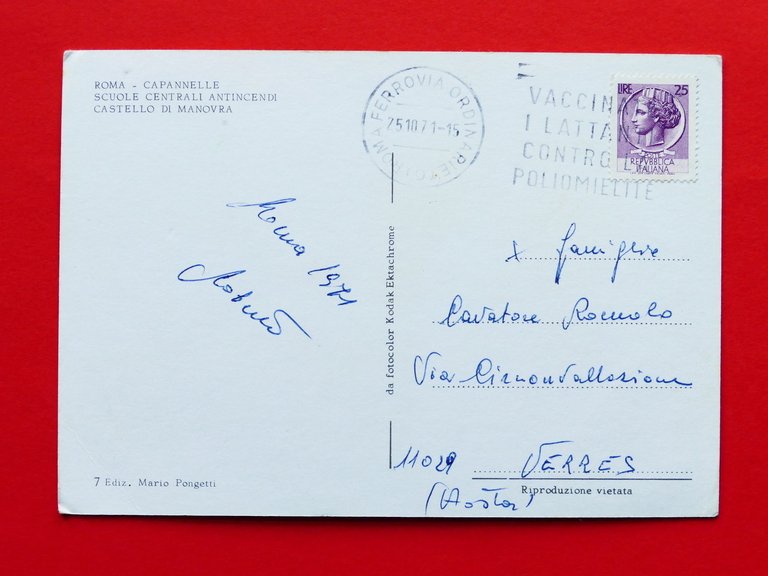 ROMA - CAPANNELLE
SCUOLE CENTRALI ANTINCENDI
CASTELLO DI MANOVRA
ROMA FERROVIA ORDINARIE
25.10.71-15
VACCINA
I LATTAN
CONTRO L
POLIOMIELITE
LIRE 25
POSTE
REPVBBLICA
ITALIANA
Roma 1971
Roberto
da fotocolor Kodak Ektachrome
x famiglia
Cavatore Romolo
Via Circonvallazione
11029 VERRES
(Aosta)
7 Ediz. Mario Pongetti
Riproduzione vietata